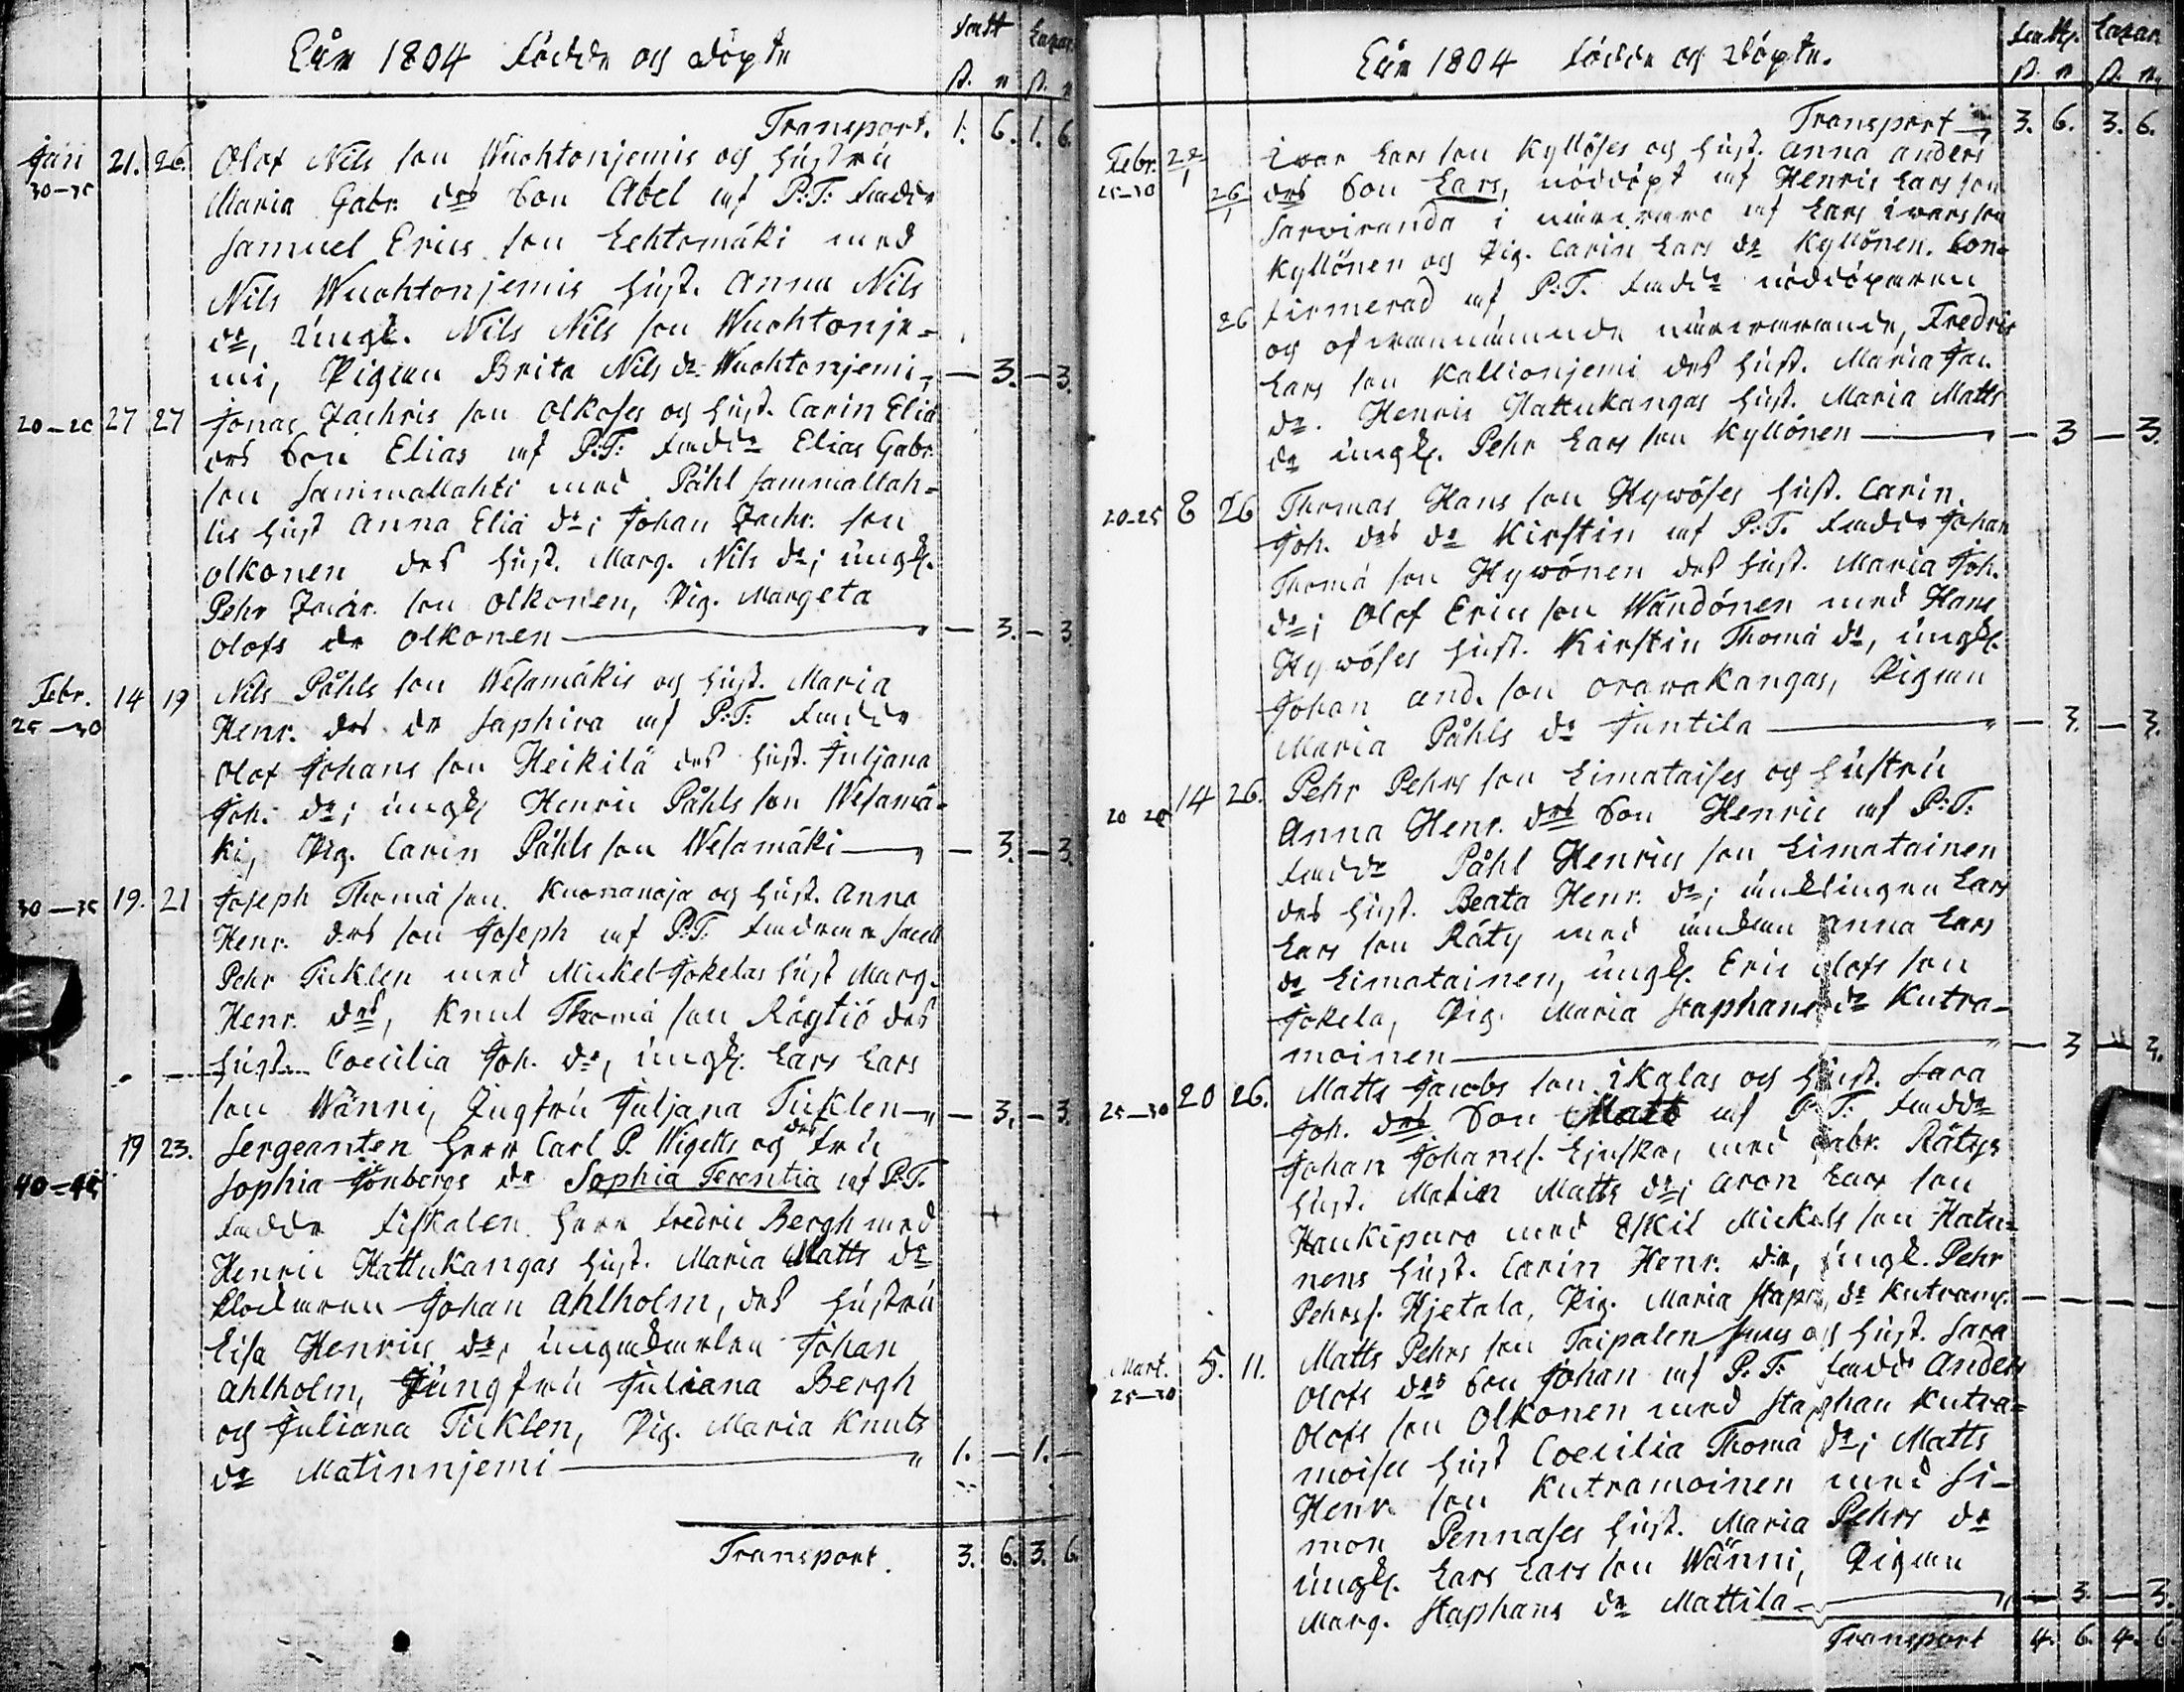 Åhr 1804 Födde og Döpte
ß. n ß. n
Transport. 1. 6. 1. 6.
Jan 21. 26. Olof Nils son Wuohtonjemis og hustru
30-35 Maria Gabr. drs Son Abel af P:T: Fadde
Samuel Erics son Lehtomäki med
Nils Wuohtonjemis hust. Anna Nils
dr, Ungk. Nils Nils son Wuohtonje-
mi, Pigan Brita Nils dr Wuohtonjemi — 3. — 3.
20-26 27 27 Jonas Zachris son Olkoses og hust. Carin Eliæ
drs Son Elias af P:T: Faddr Elias Gabr.
son Sammallahti med Påhl Sammallah-
tis hust Anna Eliæ dr; Johan Zachr. son
Olkonen des hust. Marg. Nils dr; ungk.
Pehr Zachr. son Olkonen, Pig. Margeta
Olofs dr Olkonen — 3. — 3.
Febr. 14 19 Nils Påhls son Wesamäkis og hust. Maria
25-30 Henr. drs dr Saphira af P:T: Fadde
Olof Johans son Heikilä des hust. Juljana
Joh. dr; ungk Henric Påhls son Wesamä-
ki, Pig. Carin Påhls son Wesamäki — 3. — 3.
30-35 19. 21 Joseph Thomæ son Kuonanoja og hust. Anna
Henr. drs son Joseph af P:T: Faddrar
Pehr Ticklen med Mickel Jokelas hust Marg.
Henr. drs, Knut Thomæ son Rägtiö des
hust. Coecilia Joh. dr, ungk. Lars Lars
son Wänni, Jungfru Juljana Ticklen — 3. — 3.
19 23. Sergeanten Herr Carl P. Wigelts og des fru
40-45 Sophia Fonbergs dr Sophia Terentia af P:T.
Fadde Fiskalen Herr Fredric Bergh med
Henric Hattukangas hust. Maria Matts dr
Klockaren Johan Ahlholm, des hustru
Lisa Henrics dr, Johan
Ahlholm, Jungfru Juliana Bergh
og Juliana Ticklen, Pig. Maria Knuts
dr Matinnjemi — 1. — 1. —
Transport. 3. 6. 3. 6.
Åhr 1804 Födde og Döpte.
ß. n ß. n
Transport 3. 6. 3. 6.
Febr. Ivar Lars son Kyllöses og hust. Anna Anders
25-30 26/1 drs Son Lars, nöddöpt af Henric Lars son
Sarviranda i närvaro af Lars Ivars son
Kyllönen og Pig. Carin Lars dr Kyllönen. Con-
26 firmerad af P:T. Faddr nöddöparen
og ofvannämnde närvarande, Fredric
Lars son Kallionjemi des hust. Maria Jac.
dr. Henric Hattukangas hust. Maria Matts
dr ungk. Pehr Lars son Kyllönen — 3 — 3.
20-25 8 26 Thomas Hans son Hywöses hust. Carin
Joh. drs dr Kirstin af P:T. Fadde Johan
Thomæ son Hywönen des hust. Maria Joh.
dr; Olof Erics son Wändönen med Hans
Hywöses hust. Kirstin Thomæ dr, ungk.
Johan And. son Orawakangas, Pigan
Maria Påhls dr Juntila — 3. — 3.
14 26. Pehr Pehrs son Limataises og hustru
Anna Henr. drs Son Henric af P:T:
Faddr Påhl Henrics son Limatainen
des hust. Beata Henr. dr; änklingen Lars
Lars son Räty med änkan Anna Lars
dr Limatainen, ungk. Eric Olofs son
Jokela, Pig. Maria Staphans dr Kutra-
moinen — 3 — 3.
25-30 20 26. Matts Jacobs son Ikalas og hust. Sara
Joh. drs Son Matts af P:T: Faddr
Johan Johanss. med Gabr. Rätys
hust. Maria Matts dr; Aron Lars son
Haukipuro med Eskil Mickels son Hatu-
nens hust. Carin Henr. dr, ungk. Pehr
Pehrss. Hjetala, Pig. Maria Staph. dr Kutram. — — — —
Mart. 5. 11. Matts Pehrs son Taipalen og hust. Sara
25-30 Olofs drs Son Johan af P:T: Fadde Anders
Olofs son Olkonen med Staphan Kutra-
moises hust Coecilia Thomæ dr; Matts
Henr. son Kutramoinen med Si-
mon Pennases hust. Maria Pehrs dr
ungk. Lars Lars son Wänni, Pigan
Marg. Staphans dr Mattila — 3. — 3.
Transport 4. 6. 4. 6.